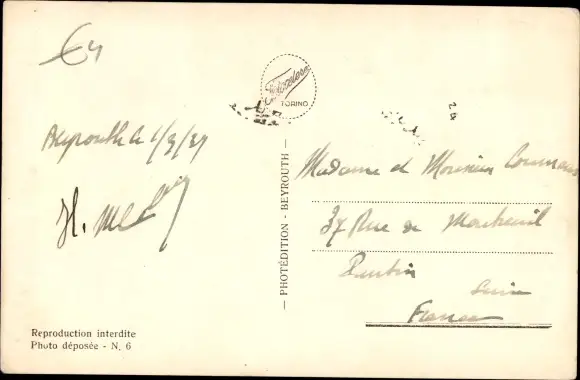 €4
Fotocelere
TORINO
Beyrouth le 1/3/37
H.
— PHOTÉDITION - BEYROUTH —
Madame et Monsieur
37 Rue de Montreuil
Pantin
Seine
France
Reproduction interdite
Photo déposée - N. 6